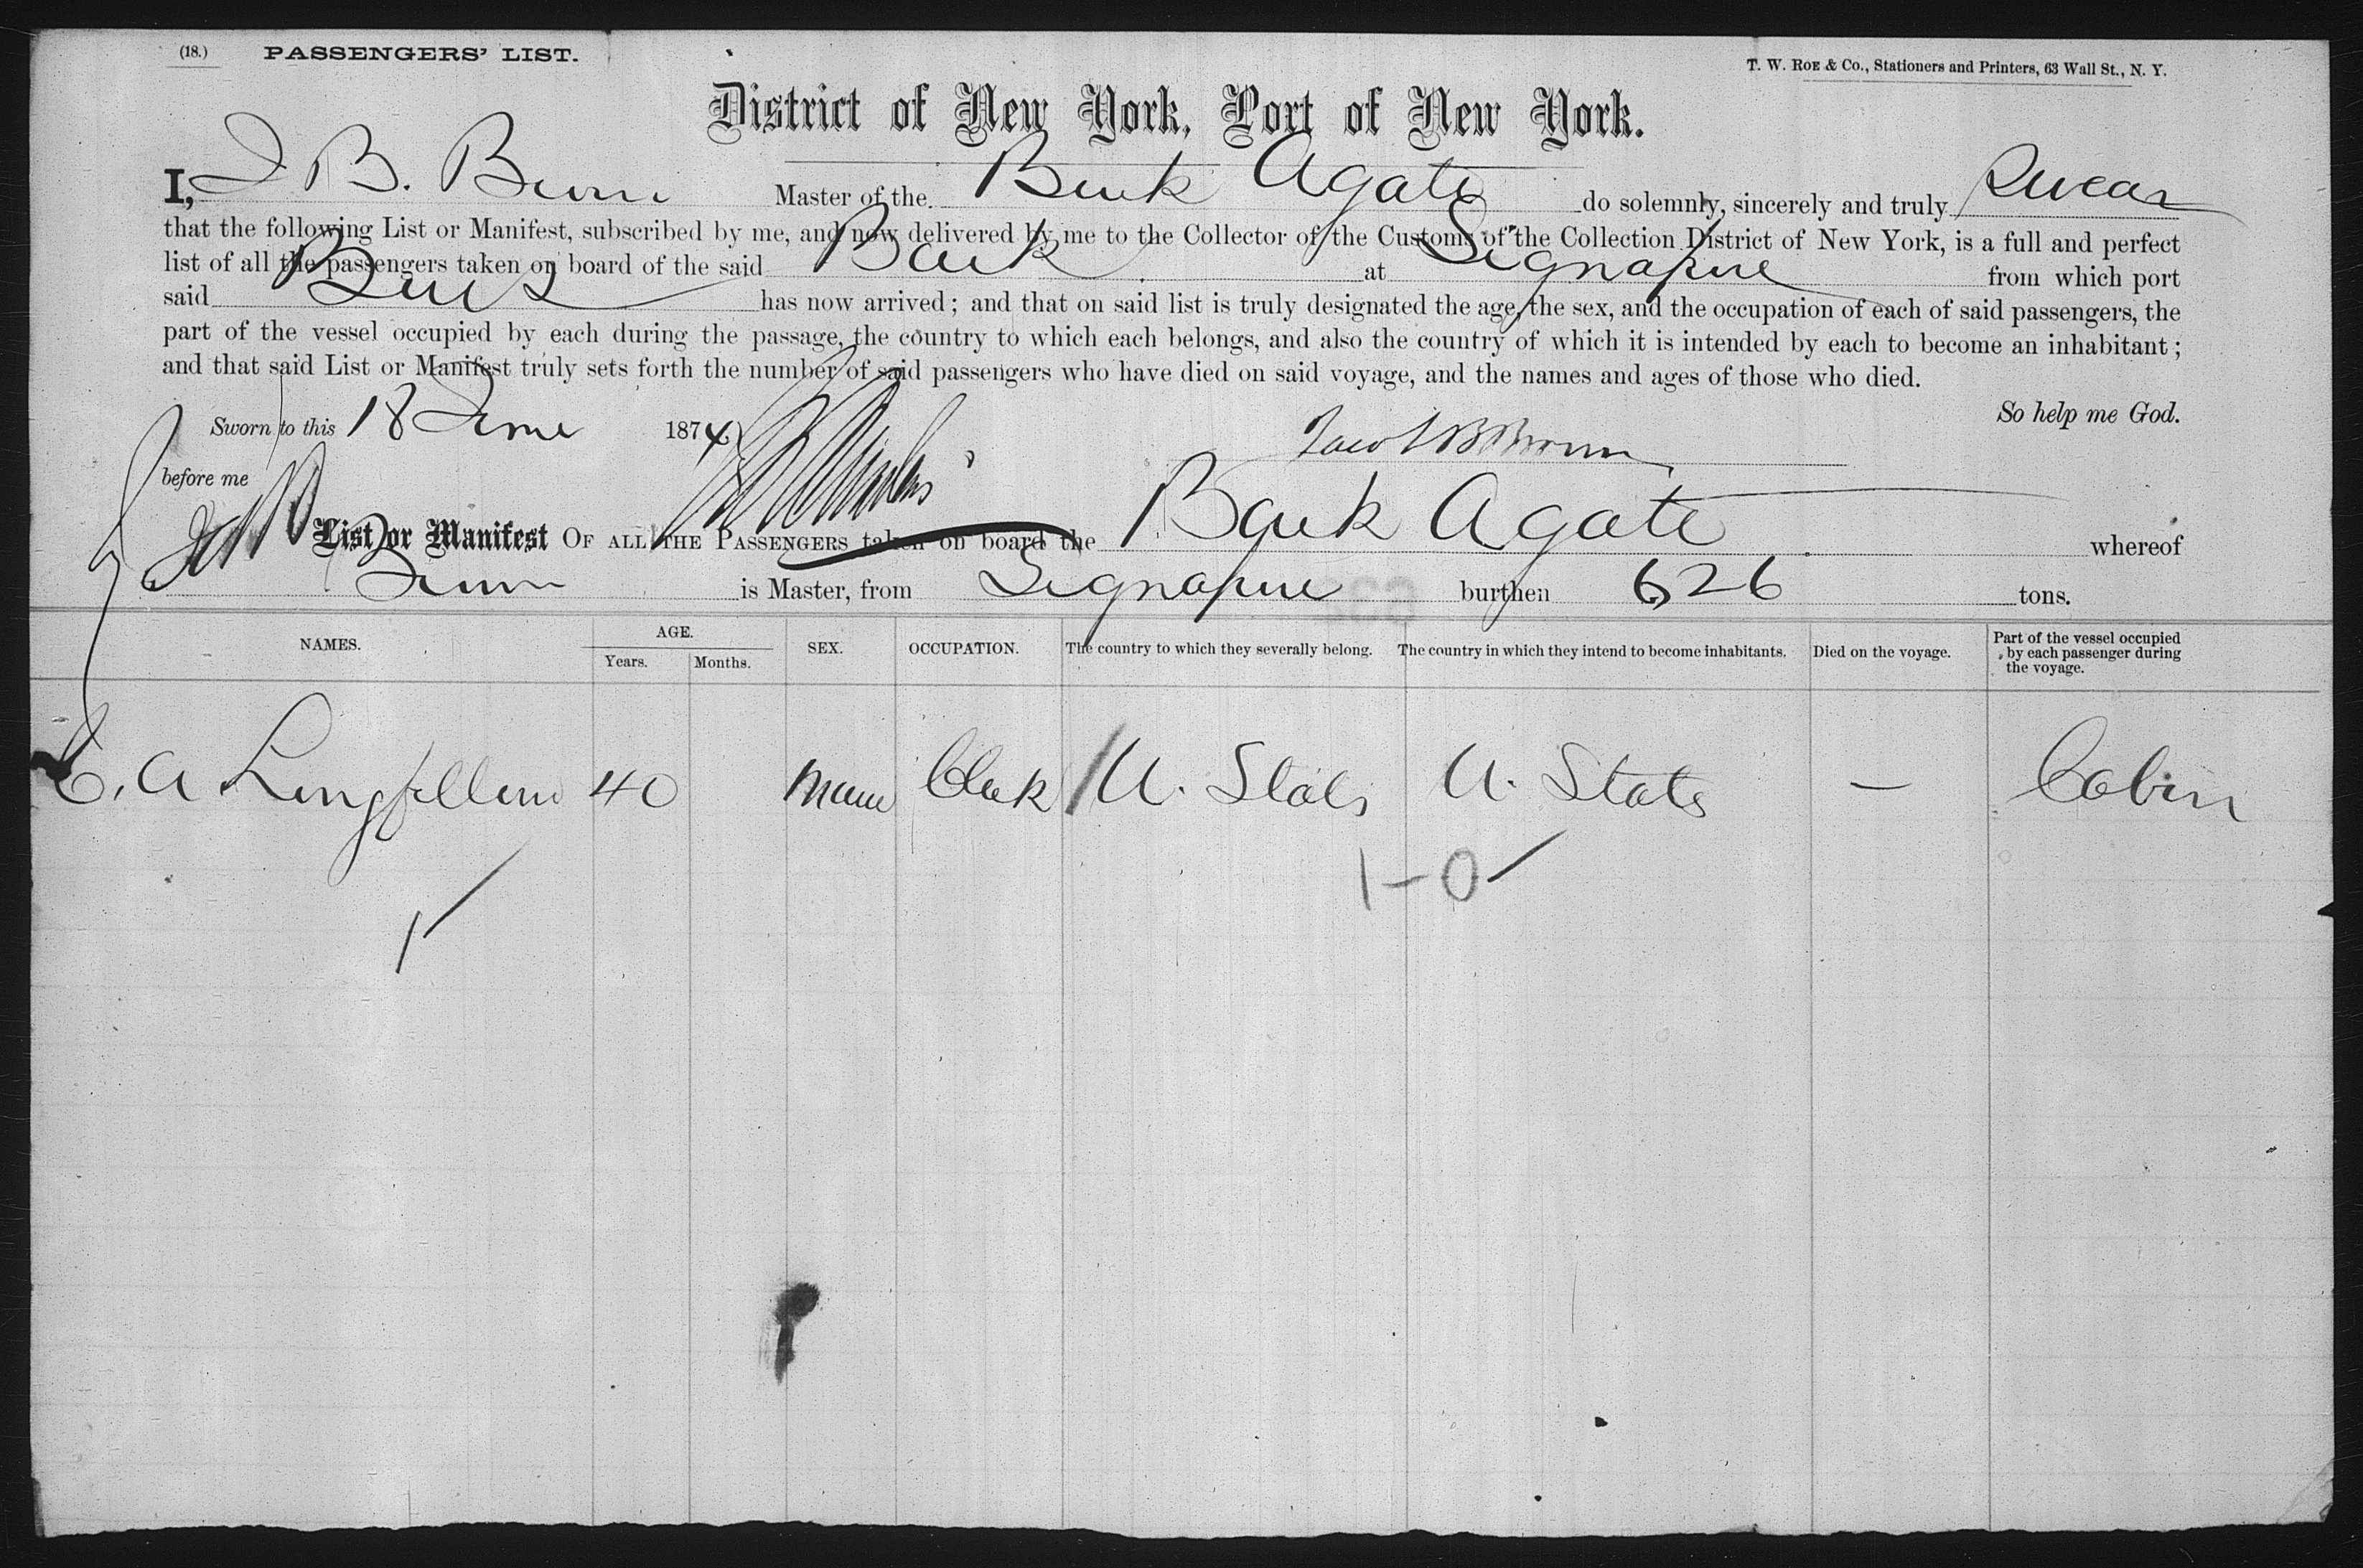 (18.) PASSENGERS' LIST.
T. W. ROE & Co., Stationers and Printers, 63 Wall St., N. Y.
District of New York, Port of New York.
I, J B. Brown Master of the Bark Agate do solemnly, sincerely and truly Swear
that the following List or Manifest, subscribed by me, and now delivered by me to the Collector of the Customs of the Collection District of New York, is a full and perfect
list of all the passengers taken on board of the said Bark at Signapue from which port
said Bark has now arrived; and that on said list is truly designated the age, the sex, and the occupation of each of said passengers, the
part of the vessel occupied by each during the passage, the country to which each belongs, and also the country of which it is intended by each to become an inhabitant;
and that said List or Manifest truly sets forth the number of said passengers who have died on said voyage, and the names and ages of those who died.
So help me God.
Sworn to this 18 June 1874
Jacob B Brown
before me
List or Manifest OF ALL THE PASSENGERS taken on board the Bark Agate whereof
Brown is Master, from Signapue burthen 626 tons.
NAMES. AGE. Years. Months. SEX. OCCUPATION. The country to which they severally belong. The country in which they intend to become inhabitants. Died on the voyage. Part of the vessel occupied by each passenger during the voyage.
E. A Longfellow 40 Clerk U. States U. States — Cabin
1-0
1